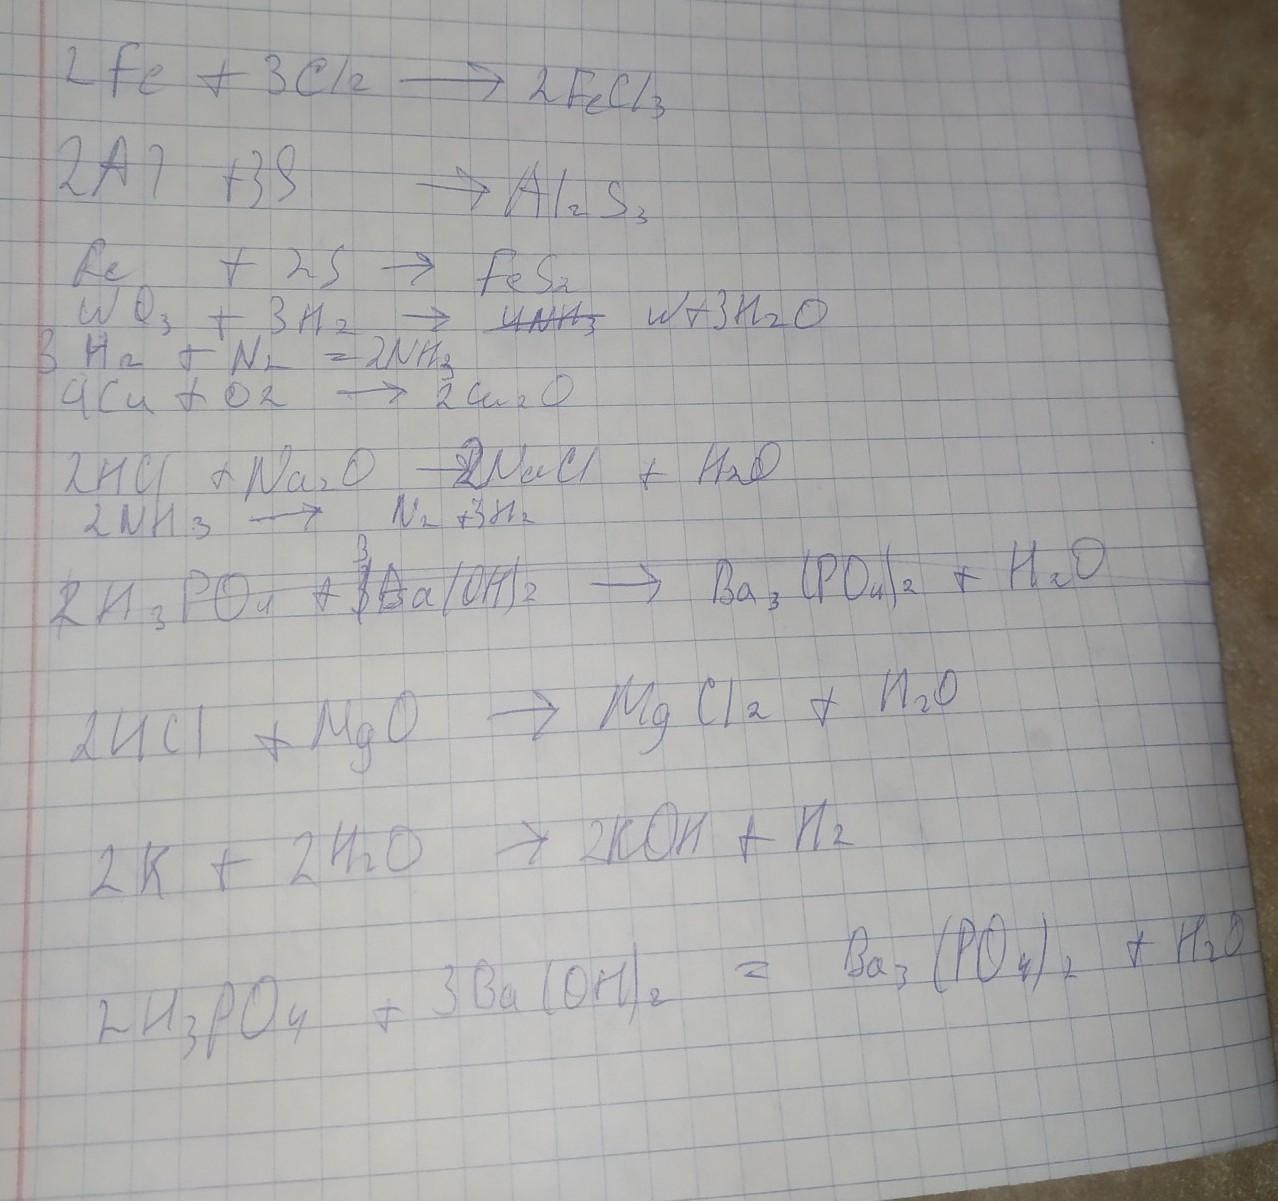 2Fe + 3Cl₂ → 2FeCl₃
2Al + 3S → Al₂S₃
Fe + 2S → FeS₂
WO₃ + 3H₂ → ~~4NH₃~~ W + 3H₂O
3H₂ + N₂ = 2NH₃
4Cu + O₂ → 2Cu₂O
2HCl + Na₂O → 2NaCl + H₂O
2NH₃ → N₂ + 3H₂
2H₃PO₄ + 3Ba(OH)₂ → Ba₃(PO₄)₂ + H₂O
2HCl + MgO → MgCl₂ + H₂O
2K + 2H₂O → 2KOH + H₂
2H₃PO₄ + 3Ba(OH)₂ = Ba₃(PO₄)₂ + H₂O